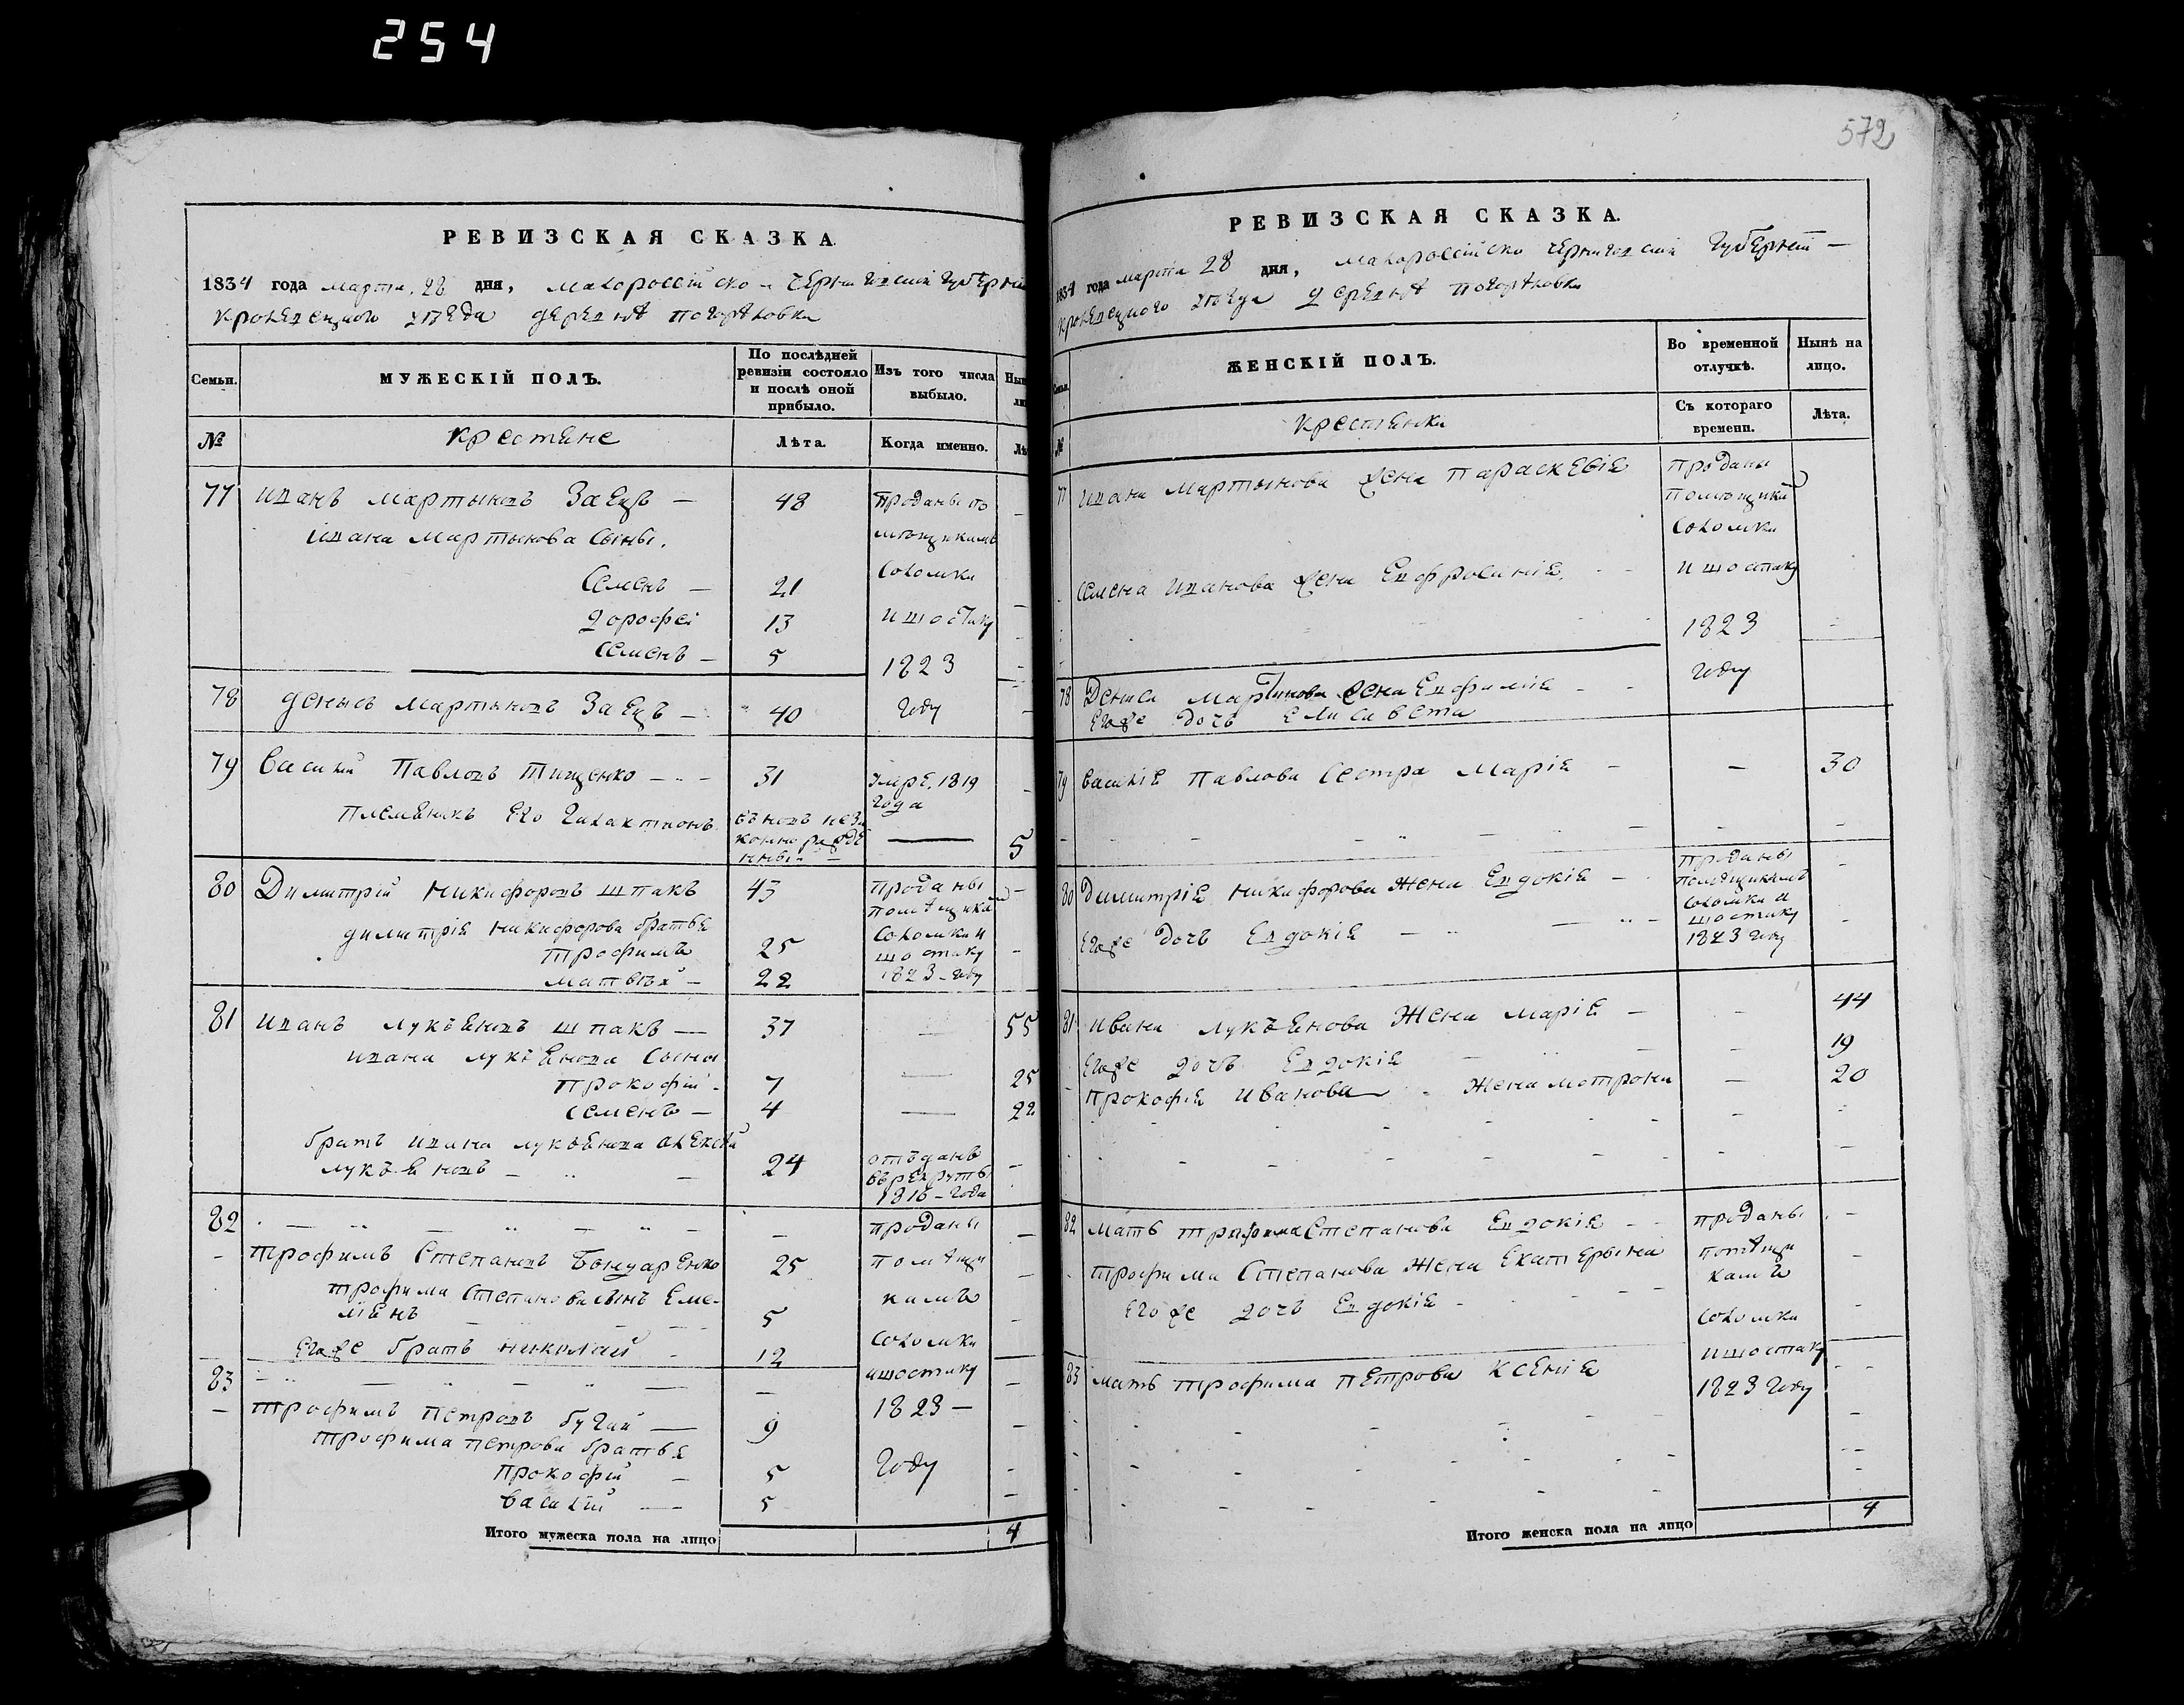 254
РЕВИЗСКАЯ СКАЗКА.
1834 года марта 28 дня, малороссійско черниговской губерніи
кролевецкого уѣзда деревнѣ погорѣловки
Семьи.
МУЖЕСКІЙ ПОЛЪ.
По послѣдней ревизіи состояло и послѣ оной прибыло.
Изъ того числа выбыло.
№
крестяне
Лѣта.
Когда именно.
77 иванъ мартыновъ Заецъ — 48 проданы по
ивана мартынова сыны. мѣщикамъ
Семенъ — 21 Соломки
дорофей 13 и шостаку
Семенъ — 5 1823
78 денысъ мартыновъ Заецъ — 40 году
79 Василій Павловъ Тищенко — 31 умре. 1819 года
племяникъ его Галактионъ 5
80 Димитрій Никифоровъ шпакъ 43 проданы
димитрія никифорова братья помѣщикам
Трофимъ 25 Соломки и шостаку
матвѣй — 22 1823 — году
81 иванъ лукъяновъ шпакъ — 37 — 55
ивана лукъянова сыны
Прокофій - 7 — 25
семенъ — 4 — 22
братъ ивана лукъянова алексѣй
лукъяновъ — 24 отъданъ въ рекруты 1816 - года
82 — проданы
Трофимъ Степановъ Бондаренко 25 помѣщи
трофима Степанова сынъ Еме-
лянъ 5 камъ
Егоже братъ николай 12 Соломки
83 — и шостаку
Трофимъ Петровъ бугай — 9 1823 —
Трофима петрова братья
прокофій — 5 году
василій — 5
Итого мужеска пола на лицо 4
572
РЕВИЗСКАЯ СКАЗКА.
1834 года марта 28 дня, малороссійско черниговской губерніи —
кролевецкого уѣзда деревнѣ погорѣловки
ЖЕНСКІЙ ПОЛЪ.
Во временной отлучкѣ.
Нынѣ на лицо.
№
крестянки
Съ котораго времени.
Лѣта.
77 ивана мартынова жена параскевія проданы
помѣщикам
Соломки
Семена иванова жена Евфросинія. и шостаку
1823
году
78 Дениса мартинова жена Евфимія
Егоже дочь елисавета
79 василія павлова сестра марія — 30
80 димитрія никифорова жена Евдокія — проданы помѣщикамъ
Соломки и шостаку
Егоже дочь Евдокія — 1823 году
81 ивана лукъянова жена марія — 44
Егоже дочь Евдокія 19
прокофія иванова жена мотрона — 20
82 мать трифима Степанова Евдокія проданы
трофима Степанова жена Екатерына помѣщи
камъ
Егоже дочь Евдокія Соломки
и шостаку
83 мать трофима петрова ксенія 1823 году
Итого женска пола на лицо 4